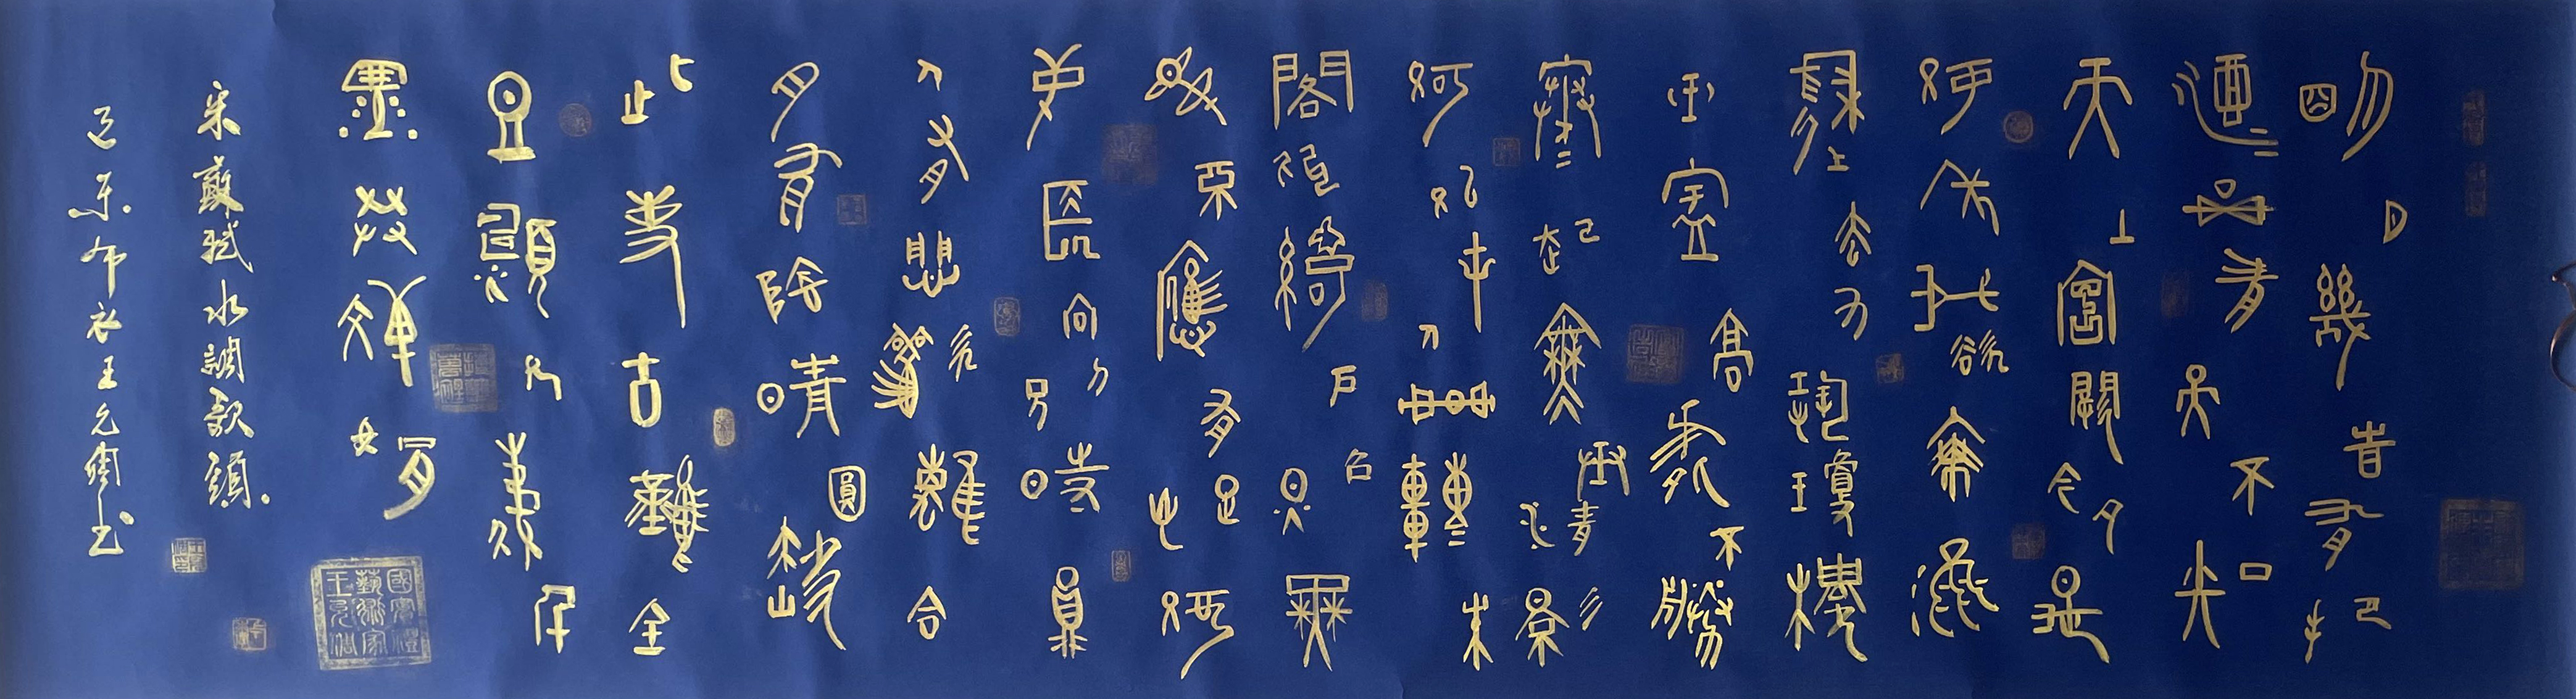 明月幾時有把
酒問青天不知
天上宮闕今夕是
何年我欲乘風
歸去又恐瓊樓
玉宇高處不勝
寒起舞弄清影
何似在人間轉朱
閣低綺戶照無
眠不應有恨何
事長向別時圓
人有悲歡離合
月有陰晴圓缺
此事古難全
但願人長久千
里共嬋娟
宋蘇軾水調歌頭。
布衣王允書